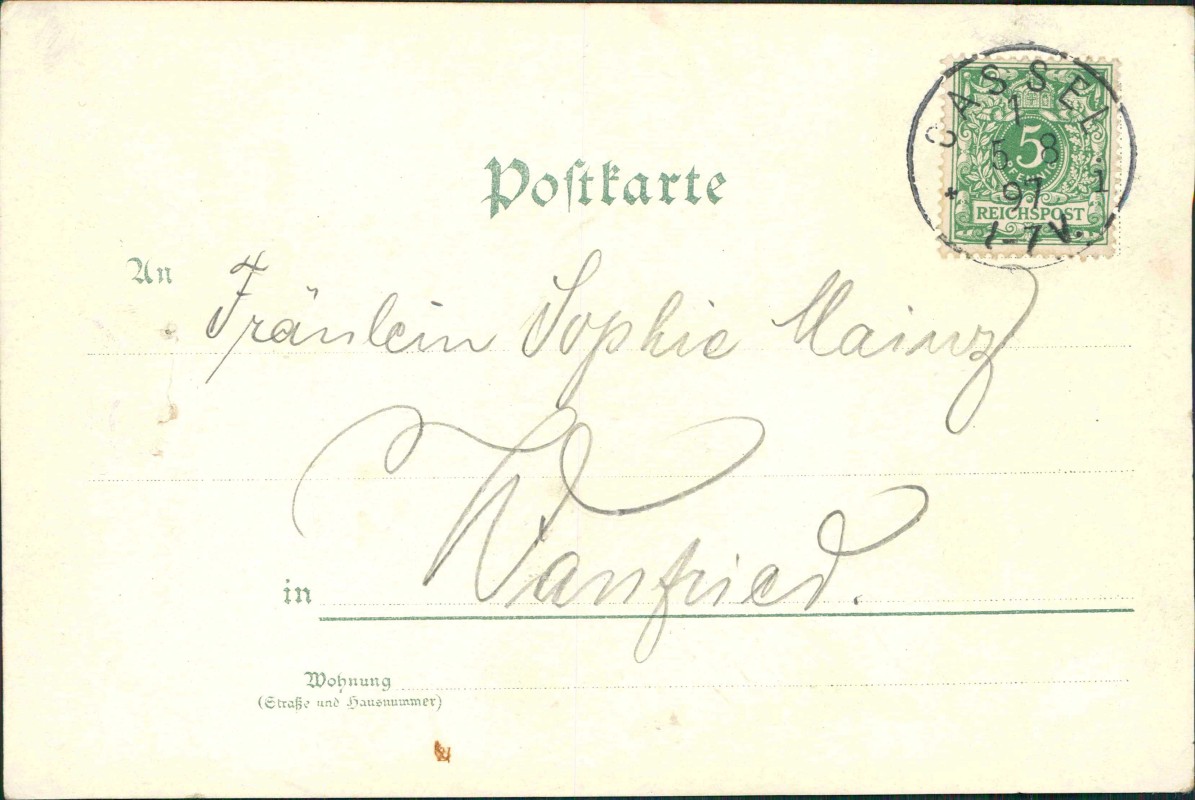 Postkarte
CASSEL
1
5 8
97
1-7 V.
* i
5
PFENNIG
REICHSPOST
An Fräulein Sophie Mainz
in Wanfried.
Wohnung
(Straße und Hausnummer)